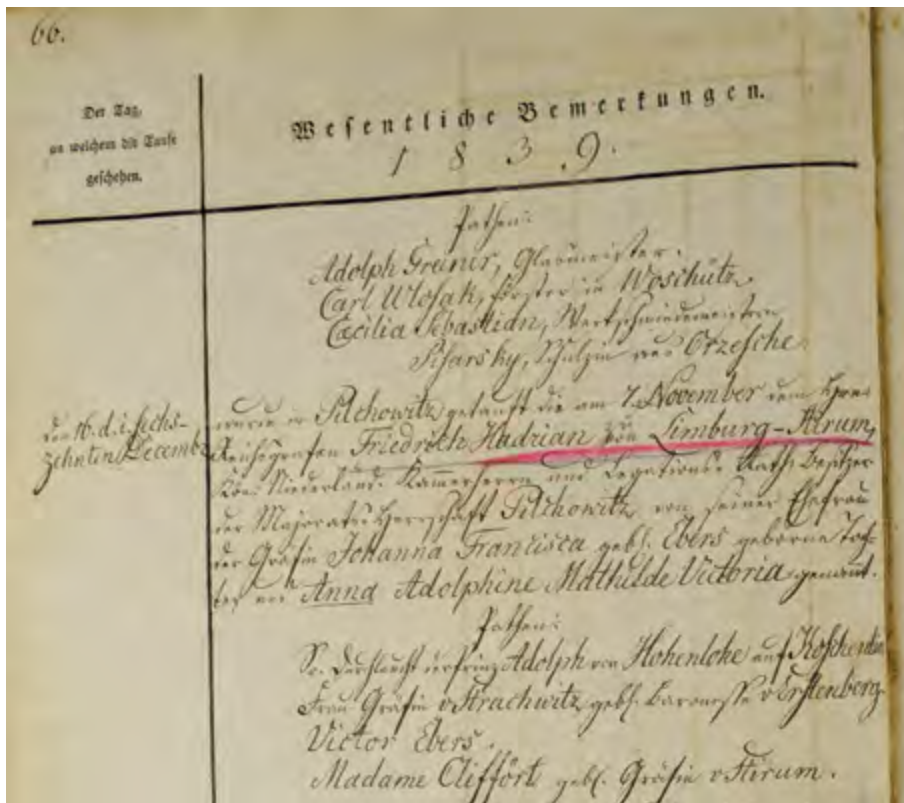 66.
Der Tag,
an welchem die Taufe
geschehen.
Wesentliche Bemerkungen.
1839.
Pathen:
Adolph Greiner, Glasmeister.
Carl Wlosak, Förster in Woschütz.
Cäcilia Sebastian, Werkschmiedemeisterin
Pisarsky, Schulzin aus Orzesche.
den 16. d. i. sechs-
zehnten December
wurde in Pilchowitz getauft die am 7. November dem Herrn
Reichsgrafen Friedrich Hadrian von Limburg-Stirum,
Kön. Niederländ. Kammerherrn und Legations Rath, Besitzer
der Majorats Herrschaft Pilchowitz von seiner Ehefrau
der Gräfin Johanna Francisca geb. Ebers geborne Toch-
ter Anna Adolphine Mathilde Victoria genannt.
Pathen:
Se. Durchlaucht der Prinz Adolph von Hohenlohe auf Koschentin
Frau Gräfin v Strachwitz geb. Baronesse v
Victor Ebers.
Madame Cliffört geb. Gräfin v Stirum.